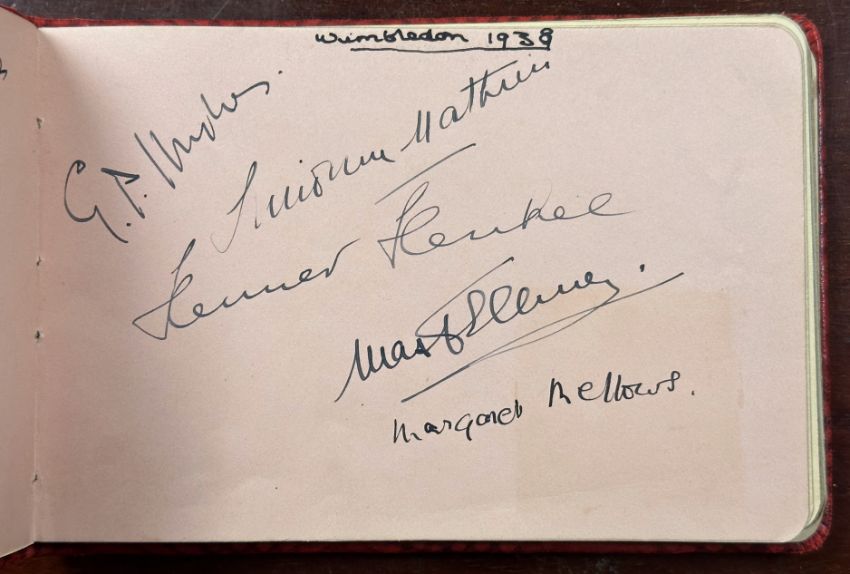 Wimbledon 1938
G.P. Hughes.
Simonne Mathieu
Henner Henkel
Max Ellmer.
Margaret Mellows.